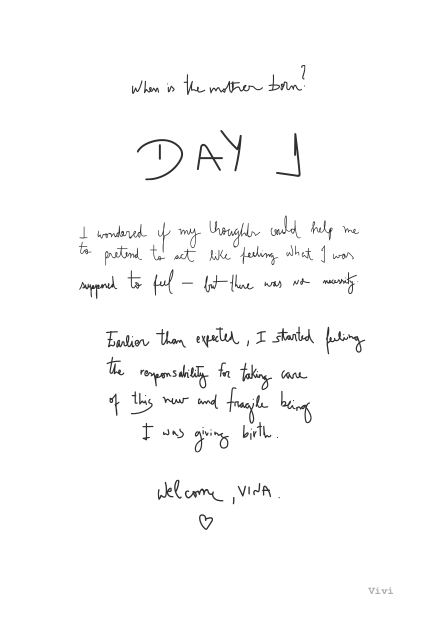 When is the mother born?
DAY 1
I wondered if my thoughts could help me
to pretend to act like feeling what I was
supposed to feel — but there was no necessity.
Earlier than expected, I started feeling
the responsability for taking care
of this new and fragile being
I was giving birth.
Welcome, VINA.
Vivi